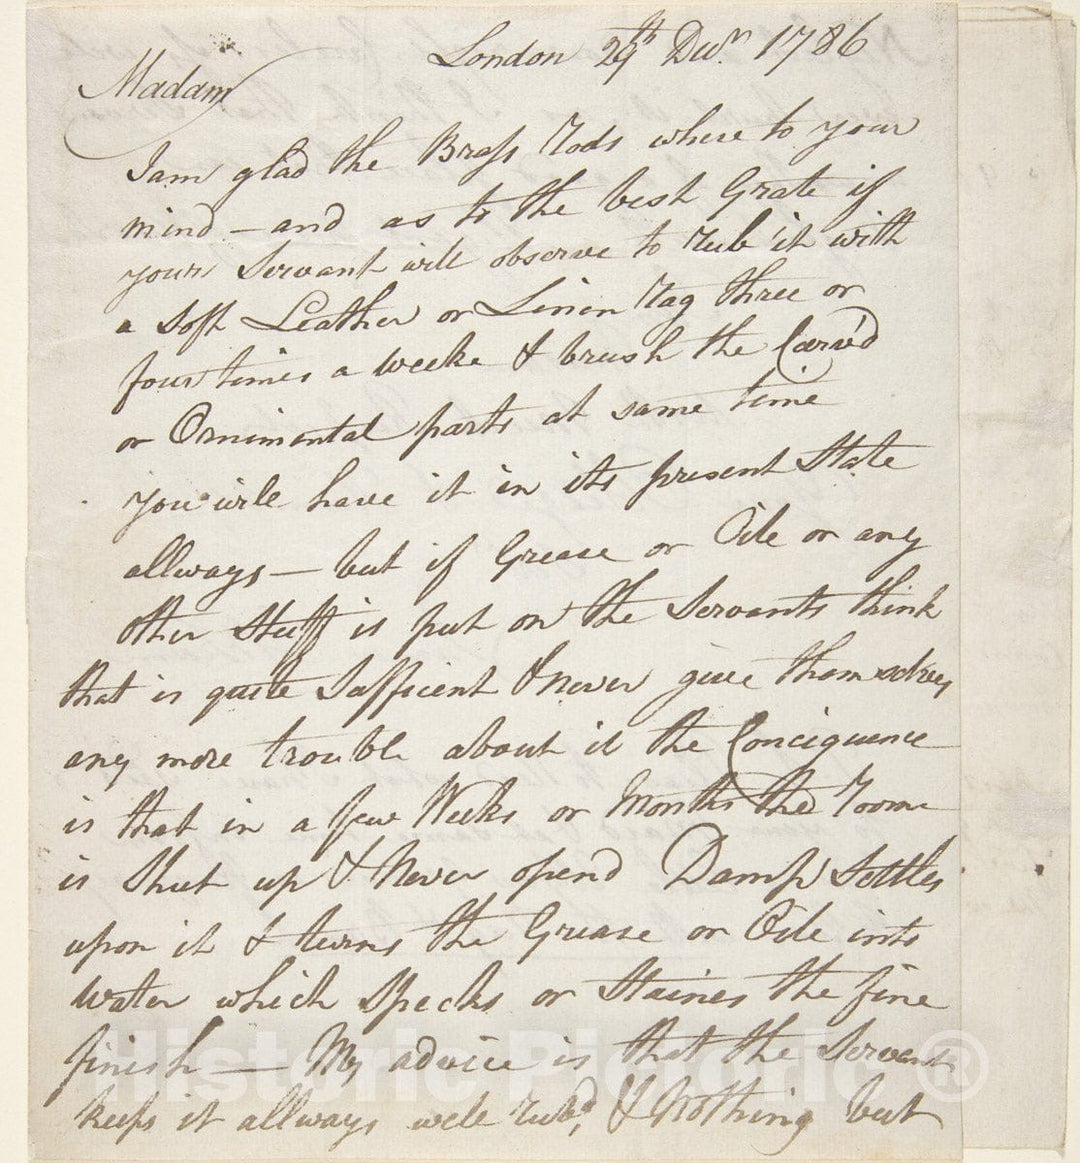 London 29th Decr. 1786
Madam
I am glad the Brass Rods where to your
mind - and as to the best Grate if
your Servant will observe to rub it with
a soft Leather or Linin Rag three or
four times a weeke & brush the Carv'd
or Ornimental parts at same time
you will have it in its present State
allways — but if Grease or Oile or any
other Stuff is put on the Servants think
that is quite Sufficent & never give themselves
any more trouble about it the Conciquence
is that in a few Weeks or Months the Room
is Shut up & Never opend Damp Settles
upon it & turns the Grease or Oile into
water which Specks or Staines the fine
finish — My advice is that the Servants
keeps it allways well rubd, & Nothing but
Historic Pictoric ®